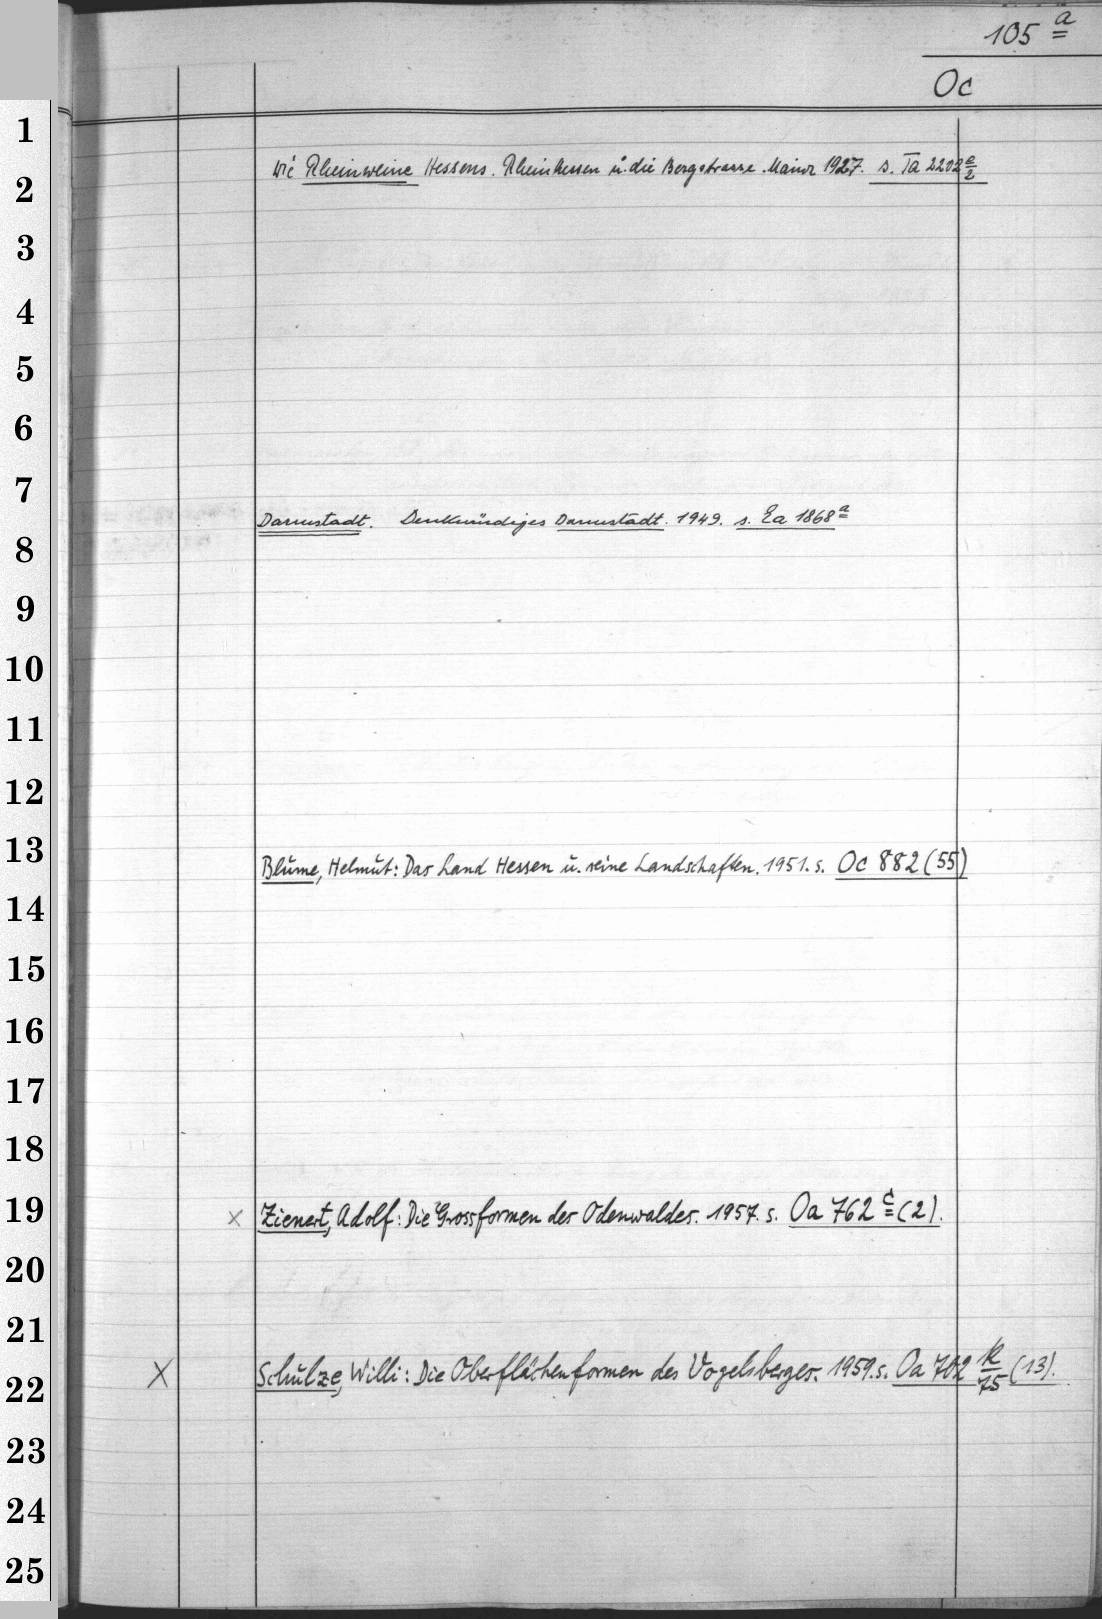 105 a
Oc
1
Die Rheinweine Hessens. Rheinhessen u. die Bergstrasse. Mainz 1927. s. Ta 2202 e/2
2
3
4
5
6
7
Darmstadt. Denkwürdiges Darmstadt. 1949. s. Ea 1868 a
8
9
10
11
12
13
Blume, Helmut: Das Land Hessen u. seine Landschaften. 1951. s. Oc 882 (55)
14
15
16
17
18
19
x Zienert, Adolf: Die Grossformen des Odenwaldes. 1957. s. Oa 762 c (2).
20
21
X Schulze, Willi: Die Oberflächenformen des Vogelsberges. 1959. s. Oa 702 k/75 (13).
22
23
24
25